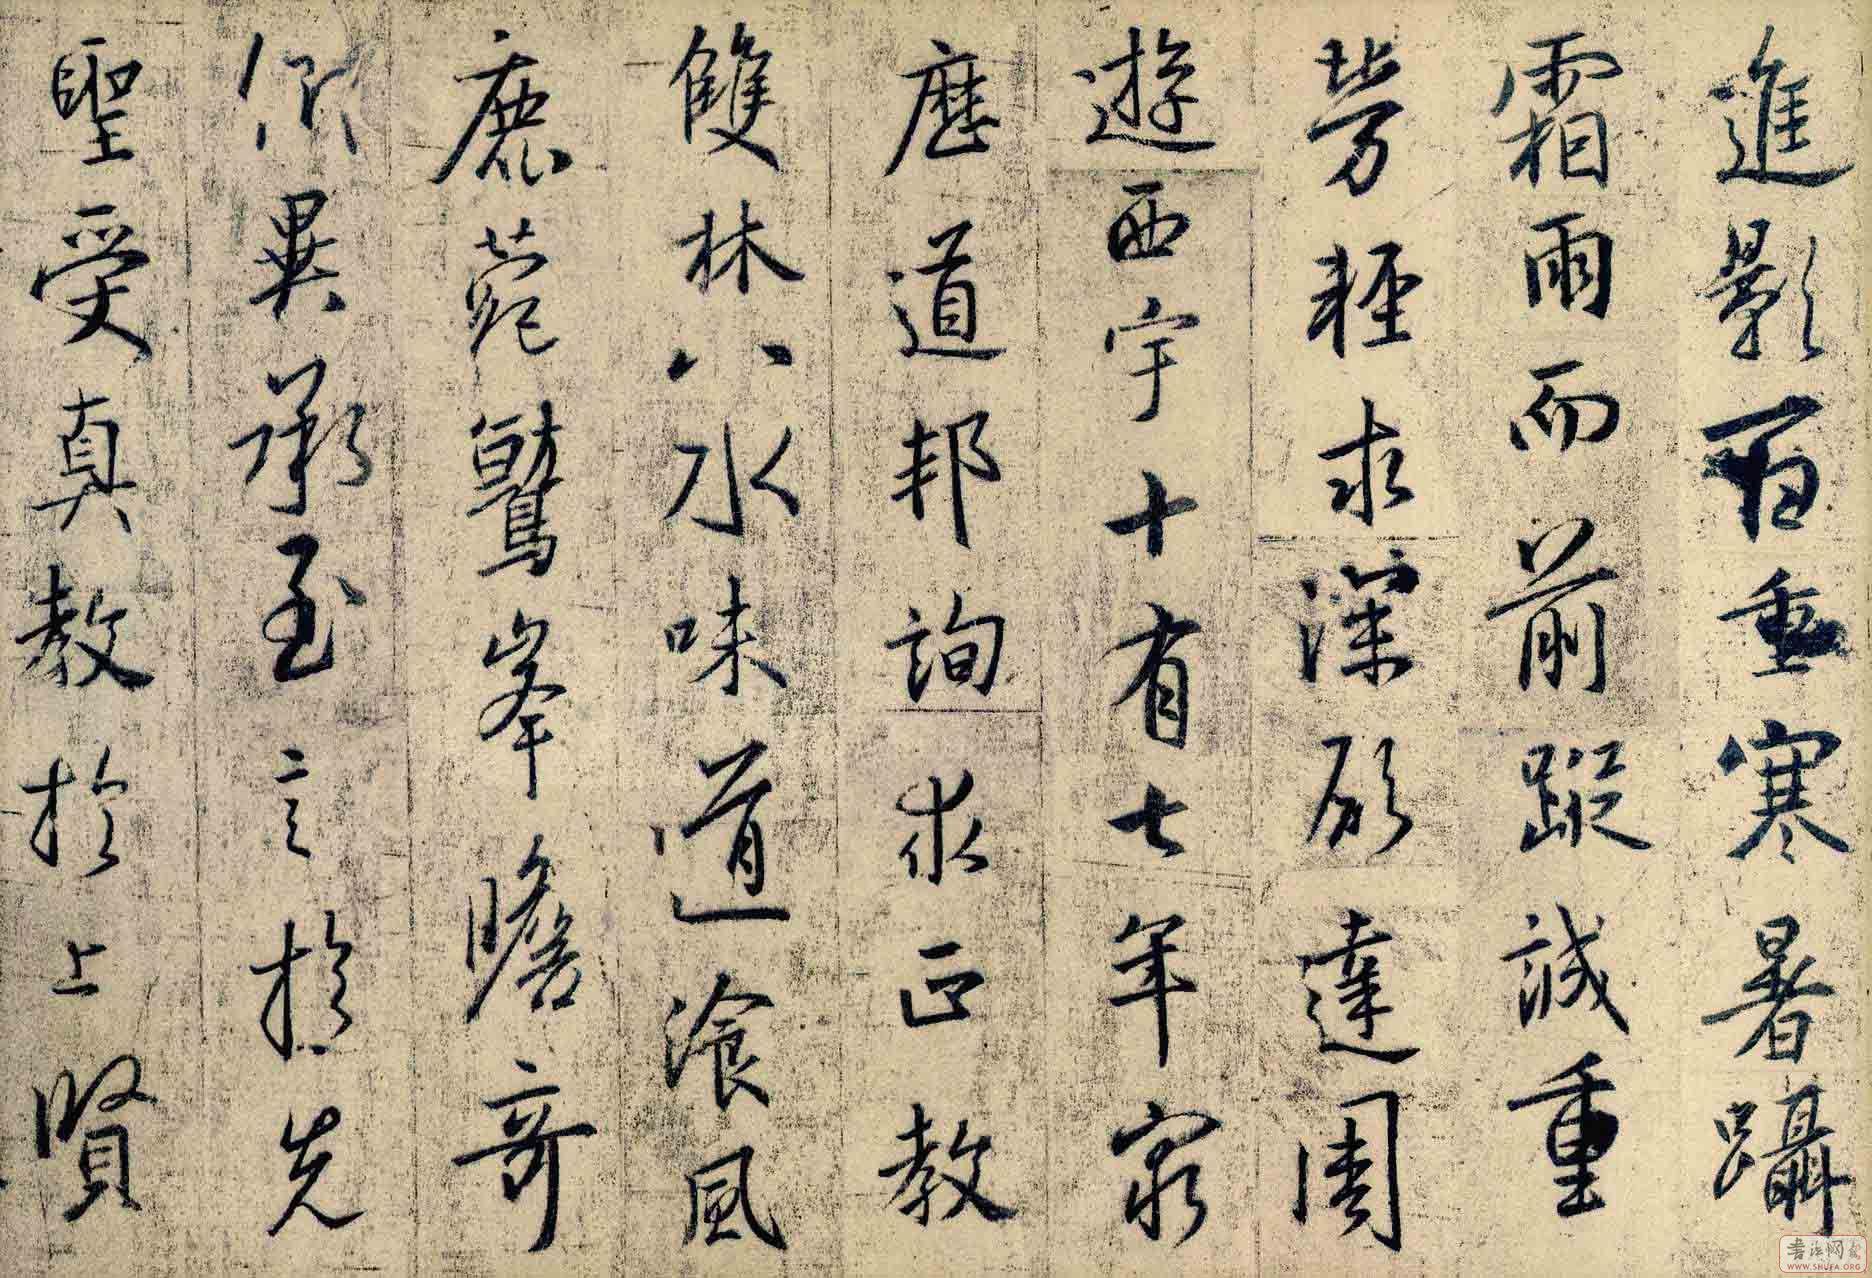 進影百重寒暑躡
霜雨而前蹤誠重
勞輕求深願達周
遊西宇十有七年窮
歷道邦詢求正教
雙林八水味道飡風
鹿菀鷲峯瞻奇
仰異承至言於先
聖受真教於上賢
書法网
WWW.SHUFA.ORG